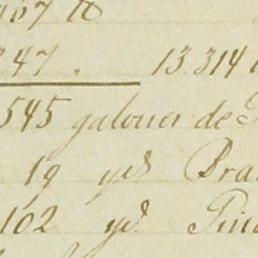 467 te
347. 13.314
545 galones de
19 yds Bra
102 yd. Pin